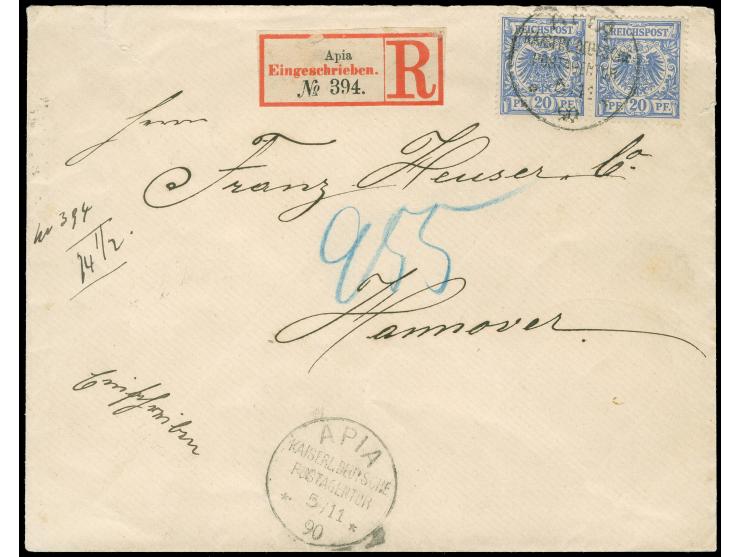 Apia
Eingeschrieben.
№ 394.
R
REICHSPOST
PF. 20 PF.
REICHSPOST
PF. 20 PF.
Herrn
Franz Heuser & Co
No 394
14 11/2.
955
Hannover.
Einschreiben
APIA
KAISERL. DEUTSCHE
POSTAGENTUR
* 5/11 *
90